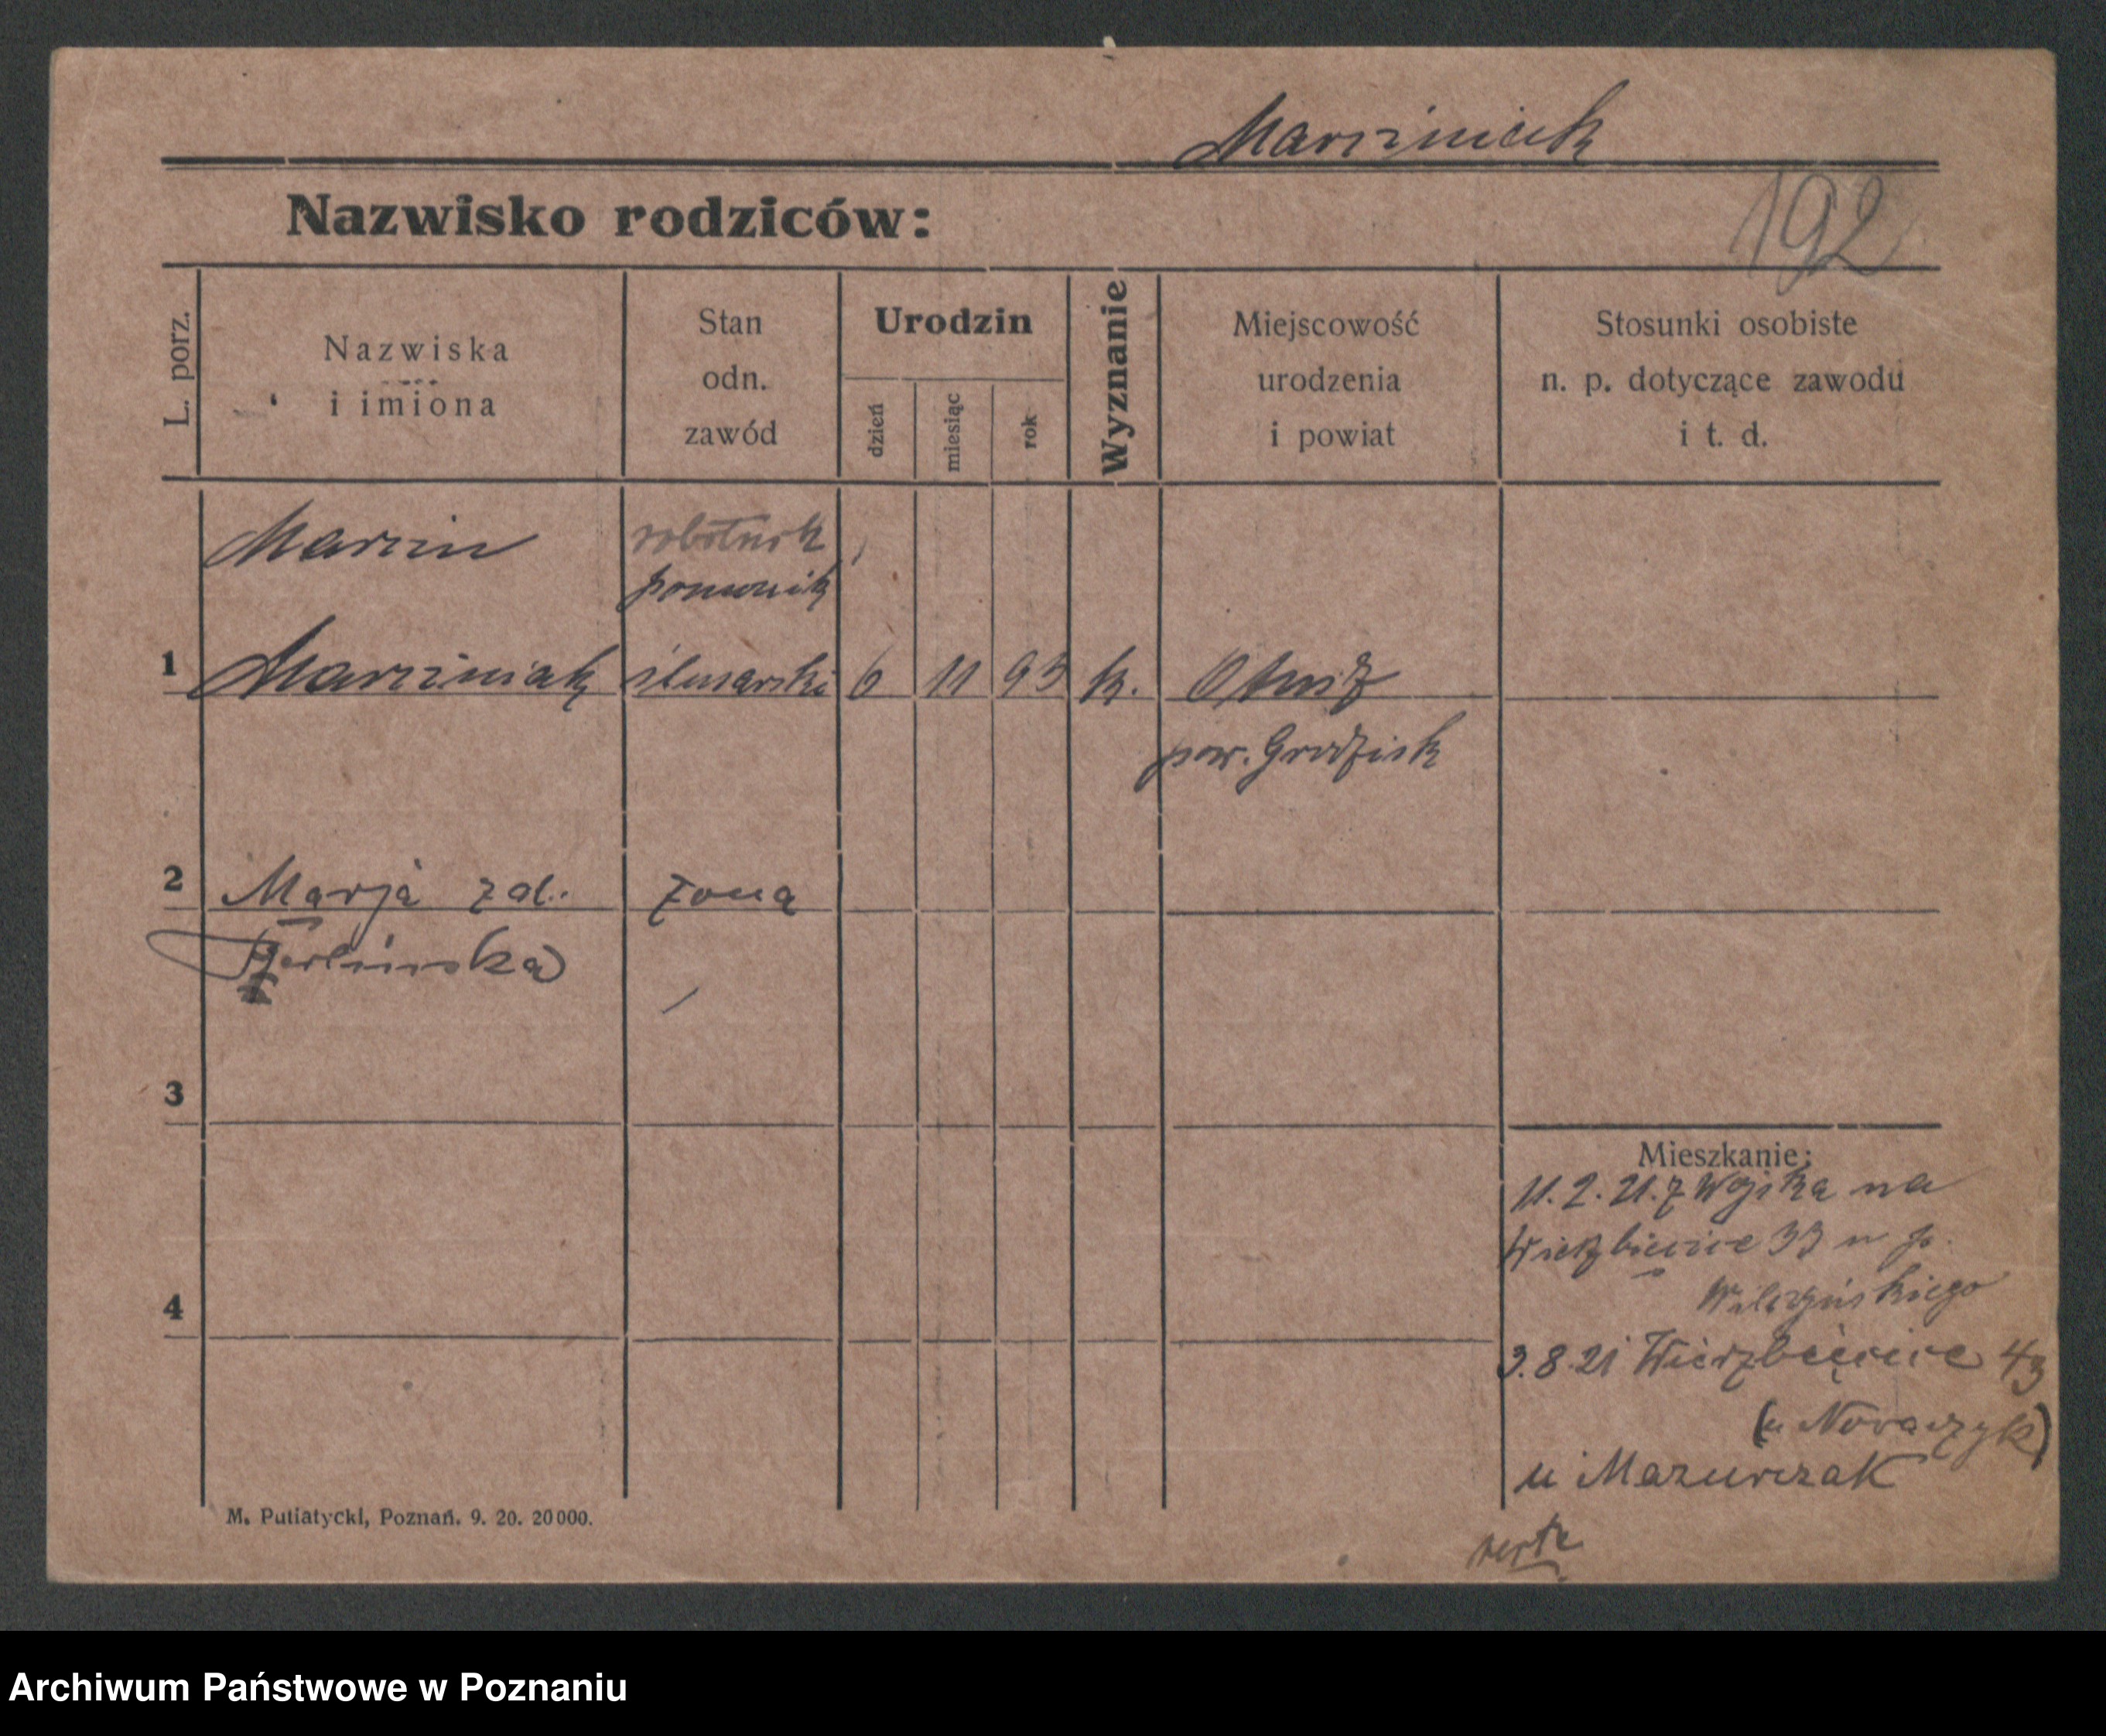 Marciniak
192
Nazwisko rodziców:
L. porz.
Nazwiska
i imiona
Stan
odn.
zawód
Urodzin
dzień
miesiąc
rok
Wyznanie
Miejscowość
urodzenia
i powiat
Stosunki osobiste
n. p. dotyczące zawodu
i t. d.
Marcin
robotnik
pomocnik
1 Marciniak ślusarski 6 11 93 k. Otusz
pow. Grodzisk
2 Marja zd. żona
3
Mieszkanie:
11. 2. 21. z Wojska na
Wierzbięcice 33 u p.
Wilczyńskiego
4
3. 8. 21 Wierzbięcice 43
(u Nowaczyk)
u Mazurczak
verte
M. Putiatycki, Poznań. 9. 20. 20000.
Archiwum Państwowe w Poznaniu